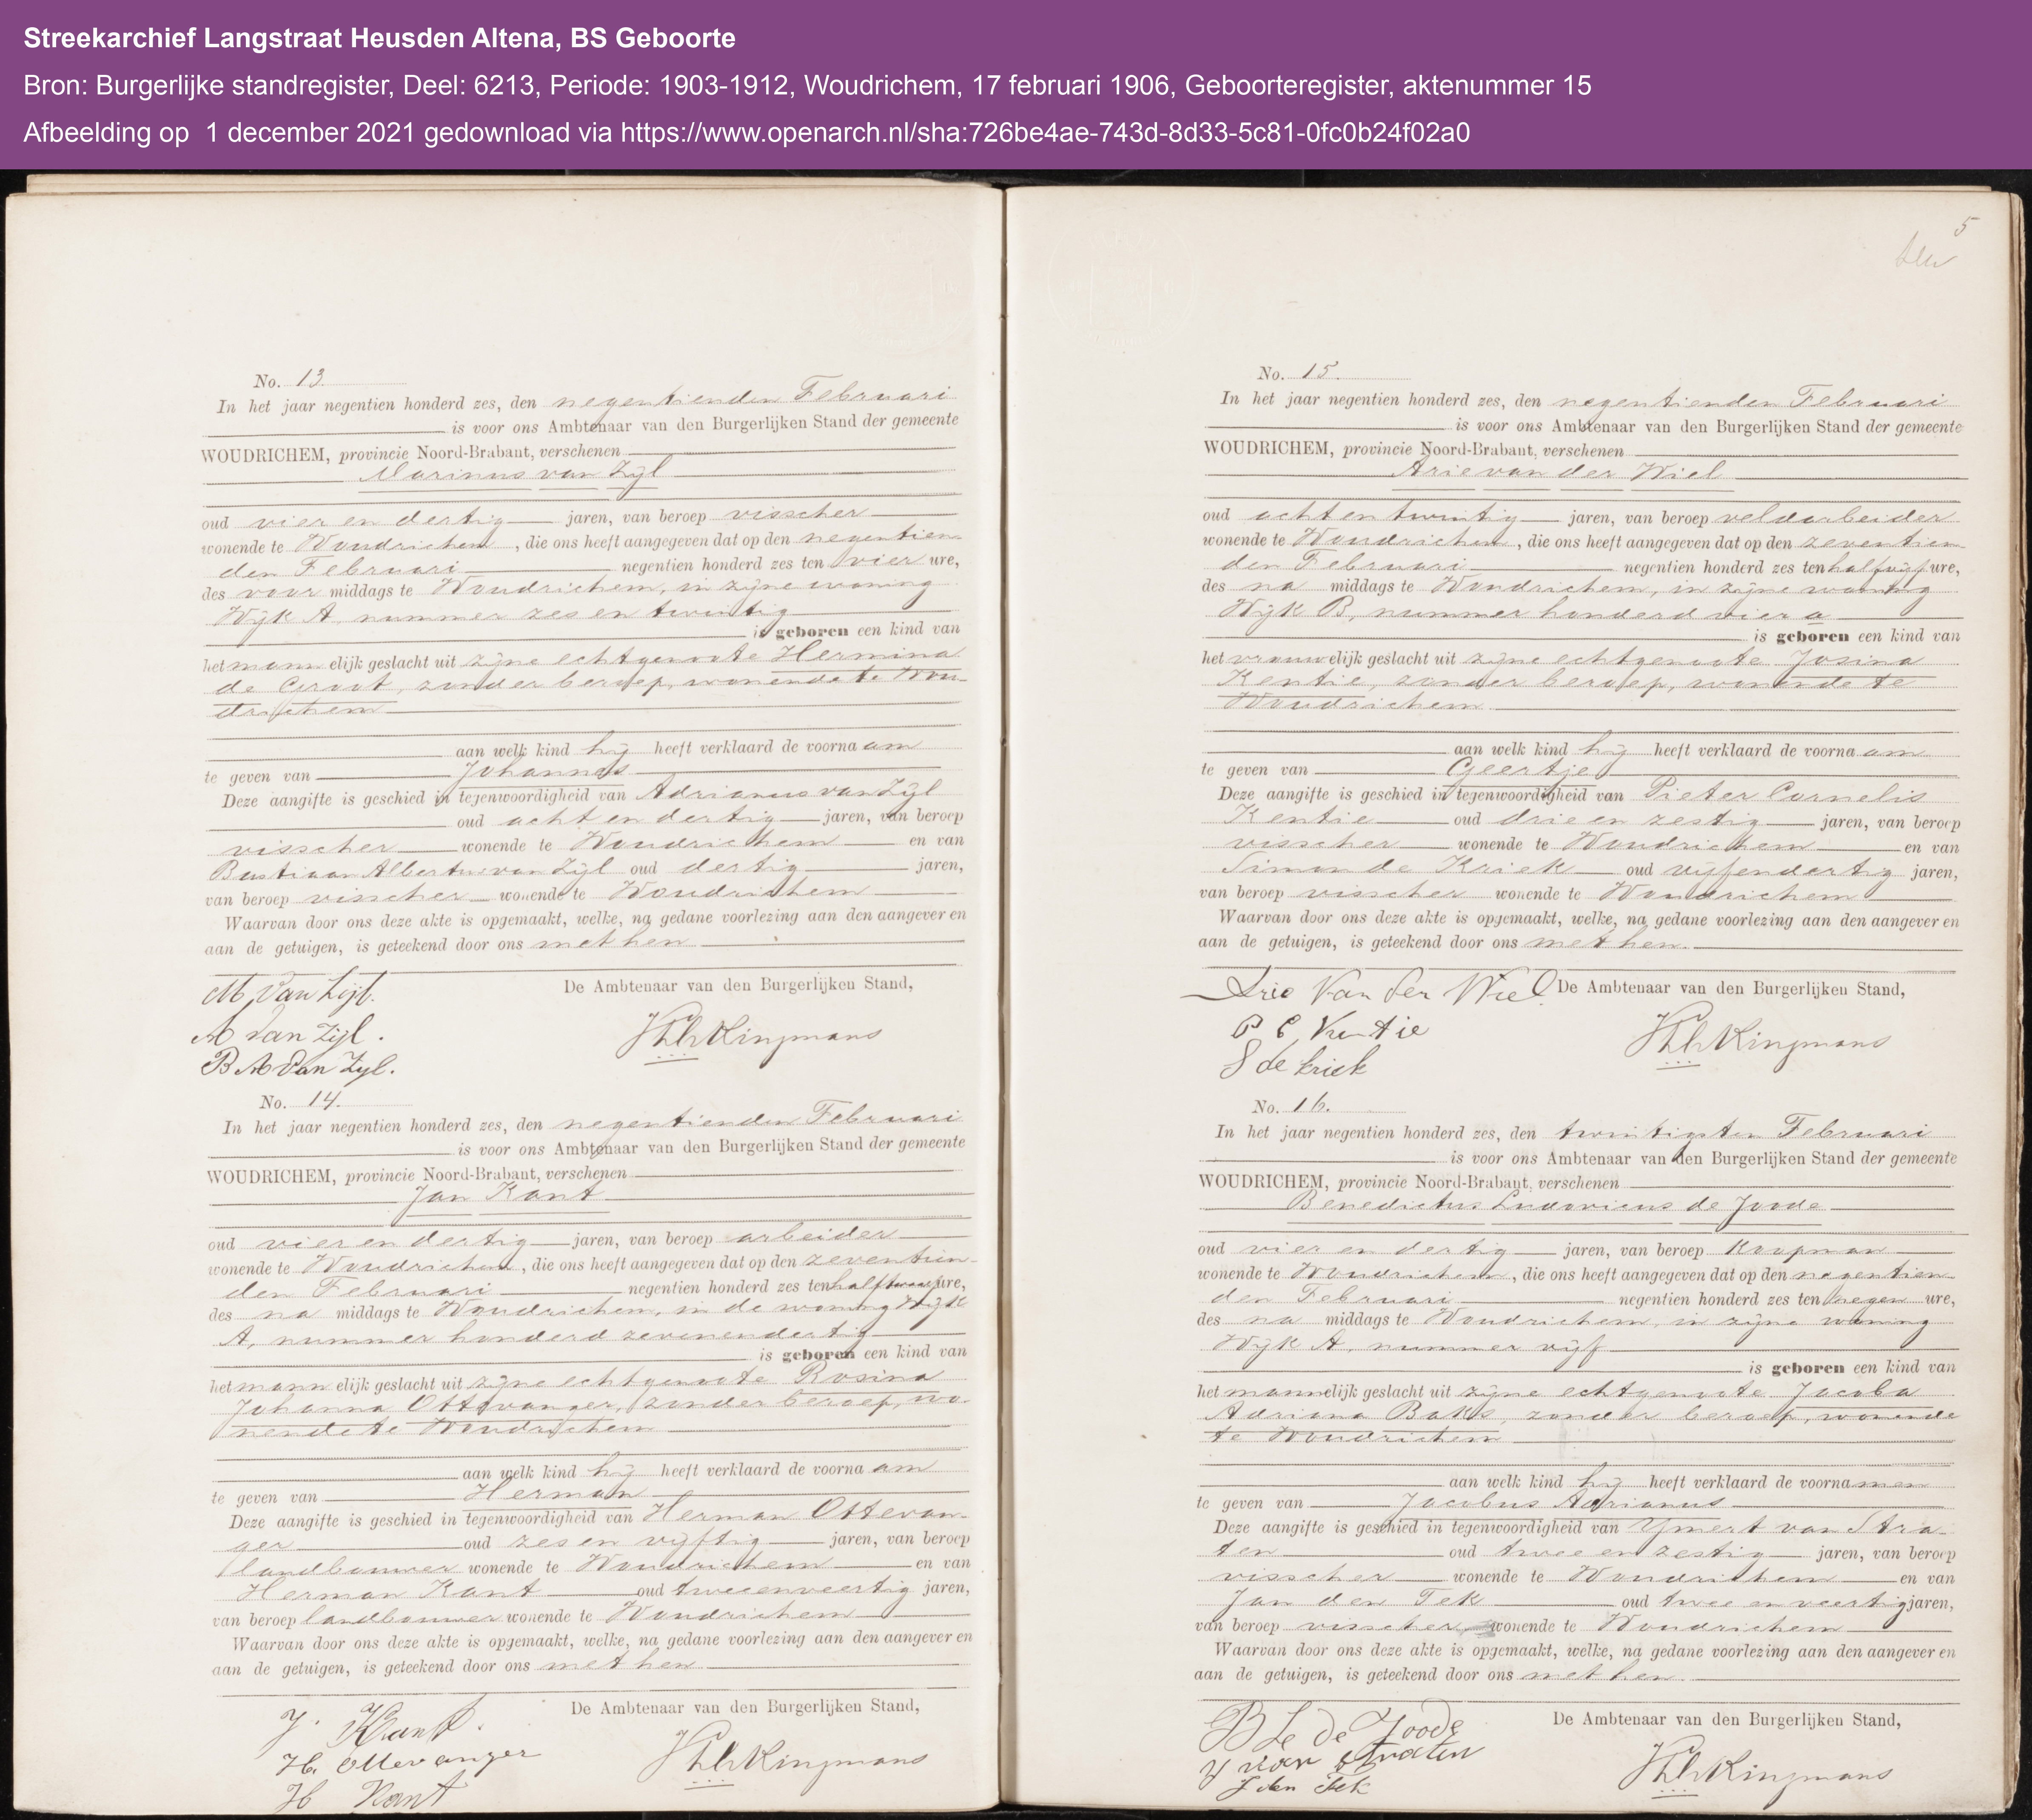 Streekarchief Langstraat Heusden Altena, BS Geboorte
Bron: Burgerlijke standregister, Deel: 6213, Periode: 1903-1912, Woudrichem, 17 februari 1906, Geboorteregister, aktenummer 15
Afbeelding op 1 december 2021 gedownload via https://www.openarch.nl/sha:726be4ae-743d-8d33-5c81-0fc0b24f02a0
No. 13.
In het jaar negentien honderd zes, den negentienden Februari
is voor ons Ambtenaar van den Burgerlijken Stand der gemeente
WOUDRICHEM, provincie Noord-Brabant, verschenen
Marinus van Zijl
oud vier en dertig jaren, van beroep visscher
wonende te Woudrichem, die ons heeft aangegeven dat op den negentien-
den Februari negentien honderd zes ten vier ure,
des voor middags te Woudrichem, in zijne woning
Wijk A, nummer zes en twintig
is geboren een kind van
het mannelijk geslacht uit zijne echtgenoote Hermina
de Groot, zonder beroep, wonende te Wou-
drichem
aan welk kind hij heeft verklaard de voornaam
te geven van Johannes
Deze aangifte is geschied in tegenwoordigheid van Adrianus van Zijl
oud acht en dertig jaren, van beroep
visscher wonende te Woudrichem en van
Bastiaan Albertus van Zijl oud dertig jaren,
van beroep visscher wonende te Woudrichem
Waarvan door ons deze akte is opgemaakt, welke, na gedane voorlezing aan den aangever en
aan de getuigen, is geteekend door ons met hen.
De Ambtenaar van den Burgerlijken Stand,
M Van Zijl.
A van Zijl.
B A Van Zyl.
Kingmans
No. 14.
In het jaar negentien honderd zes, den negentienden Februari
is voor ons Ambtenaar van den Burgerlijken Stand der gemeente
WOUDRICHEM, provincie Noord-Brabant, verschenen
Jan Kant
oud vier en dertig jaren, van beroep arbeider
wonende te Woudrichem, die ons heeft aangegeven dat op den zeventien-
den Februari negentien honderd zes ten half twaalf ure,
des na middags te Woudrichem, in de woning Wijk
A, nummer honderd zevenendertig
is geboren een kind van
het mannelijk geslacht uit zijne echtgenoote Rosina
Johanna Ottevanger, zonder beroep, wo-
nende te Woudrichem
aan welk kind hij heeft verklaard de voornaam
te geven van Herman
Deze aangifte is geschied in tegenwoordigheid van Herman Ottevan-
ger oud zes en vijftig jaren, van beroep
landbouwer wonende te Woudrichem en van
Herman Kant oud tweeenveertig jaren,
van beroep landbouwer wonende te Woudrichem
Waarvan door ons deze akte is opgemaakt, welke, na gedane voorlezing aan den aangever en
aan de getuigen, is geteekend door ons met hen
De Ambtenaar van den Burgerlijken Stand,
J. Kant.
H. Ottevanger
H Kant
Kingmans
5
No. 15.
In het jaar negentien honderd zes, den negentienden Februari
is voor ons Ambtenaar van den Burgerlijken Stand der gemeente
WOUDRICHEM, provincie Noord-Brabant, verschenen
Arie van der Wiel
oud acht en twintig jaren, van beroep veldarbeider
wonende te Woudrichem, die ons heeft aangegeven dat op den zeventien-
den Februari negentien honderd zes ten half vijf ure,
des na middags te Woudrichem, in zijne woning
Wijk B, nummer honderd vier a
is geboren een kind van
het vrouwelijk geslacht uit zijne echtgenoote Josina
Kentie, zonder beroep, wonende te
Woudrichem.
aan welk kind hij heeft verklaard de voornaam
te geven van Geertje
Deze aangifte is geschied in tegenwoordigheid van Pieter Cornelis
Kentie oud drie en zestig jaren, van beroep
visscher wonende te Woudrichem en van
Simon de Kriek oud vijfendertig jaren,
van beroep visscher wonende te Woudrichem
Waarvan door ons deze akte is opgemaakt, welke, na gedane voorlezing aan den aangever en
aan de getuigen, is geteekend door ons met hen.
Arie Van der Wiel De Ambtenaar van den Burgerlijken Stand,
P C Kentie
S de kriek
Kingmans
No. 16.
In het jaar negentien honderd zes, den twintigsten Februari
is voor ons Ambtenaar van den Burgerlijken Stand der gemeente
WOUDRICHEM, provincie Noord-Brabant, verschenen
Benedictus Ludovicus de Joode
oud vier en dertig jaren, van beroep Koopman
wonende te Woudrichem, die ons heeft aangegeven dat op den negentien-
den Februari negentien honderd zes ten negen ure,
des na middags te Woudrichem, in zijne woning
Wijk A, nummer vijf
is geboren een kind van
het mannelijk geslacht uit zijne echtgenoote Jacoba
Adriana Baks, zonder beroep, wonende
te Woudrichem
aan welk kind hij heeft verklaard de voornamen
te geven van Jacobus Adrianus
Deze aangifte is geschied in tegenwoordigheid van Ymert van Stra-
ten oud twee en zestig jaren, van beroep
visscher wonende te Woudrichem en van
Jan den Tek oud twee en veertig jaren,
van beroep visscher, wonende te Woudrichem
Waarvan door ons deze akte is opgemaakt, welke, na gedane voorlezing aan den aangever en
aan de getuigen, is geteekend door ons met hen
De Ambtenaar van den Burgerlijken Stand,
B L de Joode
Y van Straten
J den Tek
Kingmans